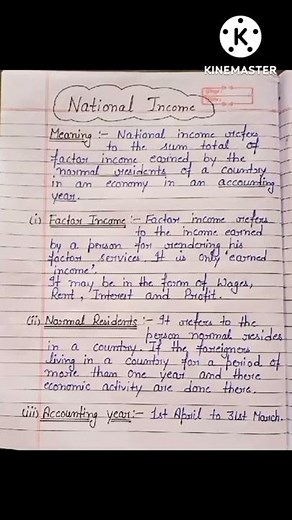 KINEMASTER
National Income
Meaning :- National income refers
to the sum total of
factor income earned by the
normal residents of a country
in an economy in an accounting
year.
(i) Factor Income :- Factor income refers
to the income earned
by a person for rendering his
factor services. It is only 'earned
income'.
It may be in the form of Wages,
Rent, Interest and Profit.
(ii) Normal Residents :- It refers to the
person normal resides
in a country. If the foreigners
living in a country for a period of
more than one year and there
economic activity are done there.
(iii) Accounting year :- 1st April to 31st March.